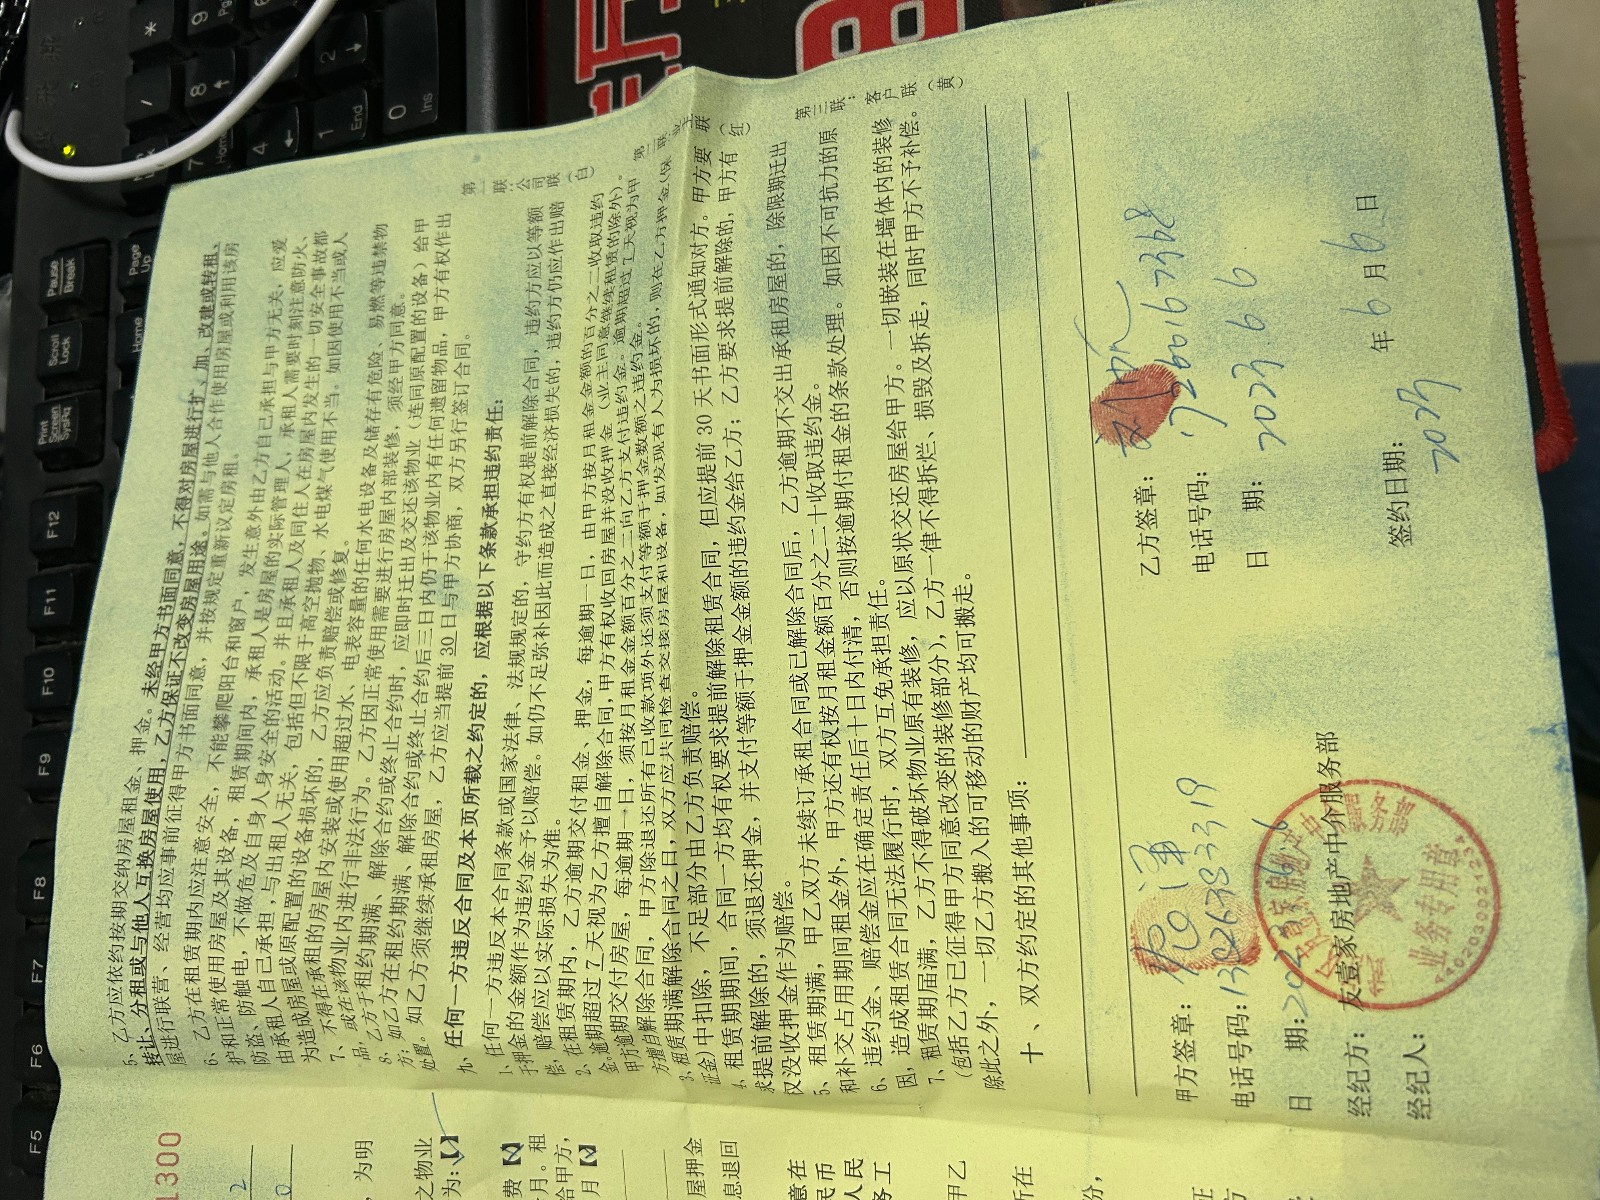 5、乙方应依约按期交纳房屋租金、押金。未经甲方书面同意，不得对房屋进行扩、加、改建或转租、
转让、分租或与他人互换房屋使用，乙方保证不改变房屋用途。如需与他人合作使用房屋或利用该房
屋进行联营、经营均应事前征得甲方书面同意，并按规定重新议定房租。
6、乙方在租赁期内应注意安全，不能攀爬阳台和窗户，发生意外由乙方自己承担与甲方无关，应爱
护和正常使用房屋及其设备，租赁期间内，承租人是房屋的实际管理人，承租人需要时刻注意防火、
防盗、防触电，不做危及自身人身安全的活动。并且承租人及同住人在房屋内发生的一切安全事故都
由承租人自己承担，与出租人无关，包括但不限于高空抛物、水电煤气使用不当。如因使用不当或人
为造成房屋或原配置的设备损坏的，乙方应负责赔偿或修复。
7、不得在承租的房屋内安装或使用超过水、电表容量的任何水电设备及储存有危险、易燃等违禁物
品，或在该物业内进行非法行为。乙方因正常使用需要进行房屋内部装修，须经甲方同意。
8、乙方于租约期满、解除合约或终止合约时，应即时迁出及交还该物业（连同原配置的设备）给甲
方；如乙方在租约期满、解除合约或终止合约后三日内仍于该物业内有任何遗留物品，甲方有权作出
处置。如乙方须继续承租房屋，乙方应当提前 30 日与甲方协商，双方另行签订合同。
九、任何一方违反合同及本页所载之约定的，应根据以下条款承担违约责任：
1、任何一方违反本合同条款或国家法律、法规规定的，守约方有权提前解除合同，违约方应以等额
于押金的金额作为违约金予以赔偿。如仍不足弥补因此而造成之直接经济损失的，违约方仍应作出赔
偿，赔偿应以实际损失为准。
2、在租赁期内，乙方逾期交付租金、押金，每逾期一日，由甲方按月租金金额的百分之二收取违约
金。逾期超过 7 天视为乙方擅自解除合同，甲方有权收回房屋并没收押金（业主同意继续租赁的除外）。
甲方逾期交付房屋，每逾期一日，须按月租金金额百分之二向乙方支付违约金。逾期超过 7 天视为甲
方擅自解除合同，甲方除退还所有已收款项外还须支付等额于押金数额之违约金。
3、租赁期满解除合同之日，双方应共同检查交接房屋和设备，如发现有人为损坏的，则在乙方押金（保
证金）中扣除，不足部分由乙方负责赔偿。
4、租赁期期间，合同一方均有权要求提前解除租赁合同，但应提前 30 天书面形式通知对方。甲方要
求提前解除的，须退还押金，并支付等额于押金金额的违约金给乙方；乙方要求提前解除的，甲方有
权没收押金作为赔偿。
5、租赁期满，甲乙双方未续订承租合同或已解除合同后，乙方逾期不交出承租房屋的，除限期迁出
和补交占用期间租金外，甲方还有权按月租金额百分之二十收取违约金。
6、违约金、赔偿金应在确定责任后十日内付清，否则按逾期付租金的条款处理。如因不可抗力的原
因，造成租赁合同无法履行时，双方互免承担责任。
7、租赁期届满，乙方不得破坏物业原有装修，应以原状交还房屋给甲方。一切嵌装在墙体内的装修
（包括乙方已征得甲方同意改变的装修部分），乙方一律不得拆烂、损毁及拆走，同时甲方不予补偿。
除此之外，一切乙方搬入的可移动的财产均可搬走。
十、双方约定的其他事项：
甲方签章：
电话号码：13826353319
日 期：2023 6 6
经纪方：友壹家房地产中介服务部
经纪人：
乙方签章：
电话号码：17260167368
日 期：2023. 6. 6
签约日期：2023 年 6 月 6 日
第一联：公司联（白）
第二联：业主联（红）
第三联：客户联（黄）
业务专用章
1300
，为明
之物业
为：【】
费【】
月。租
给甲方，
月【】
屋押金
息退回
意在
民币
人民
务工
甲乙
所在
份，
Pause Break
Scroll Lock
Print Screen SysRq
Page Up
Home
F12
F11
F10
F9
F8
F7
F6
F5
*
/
9
8
7
4
1 End
2
0 Ins